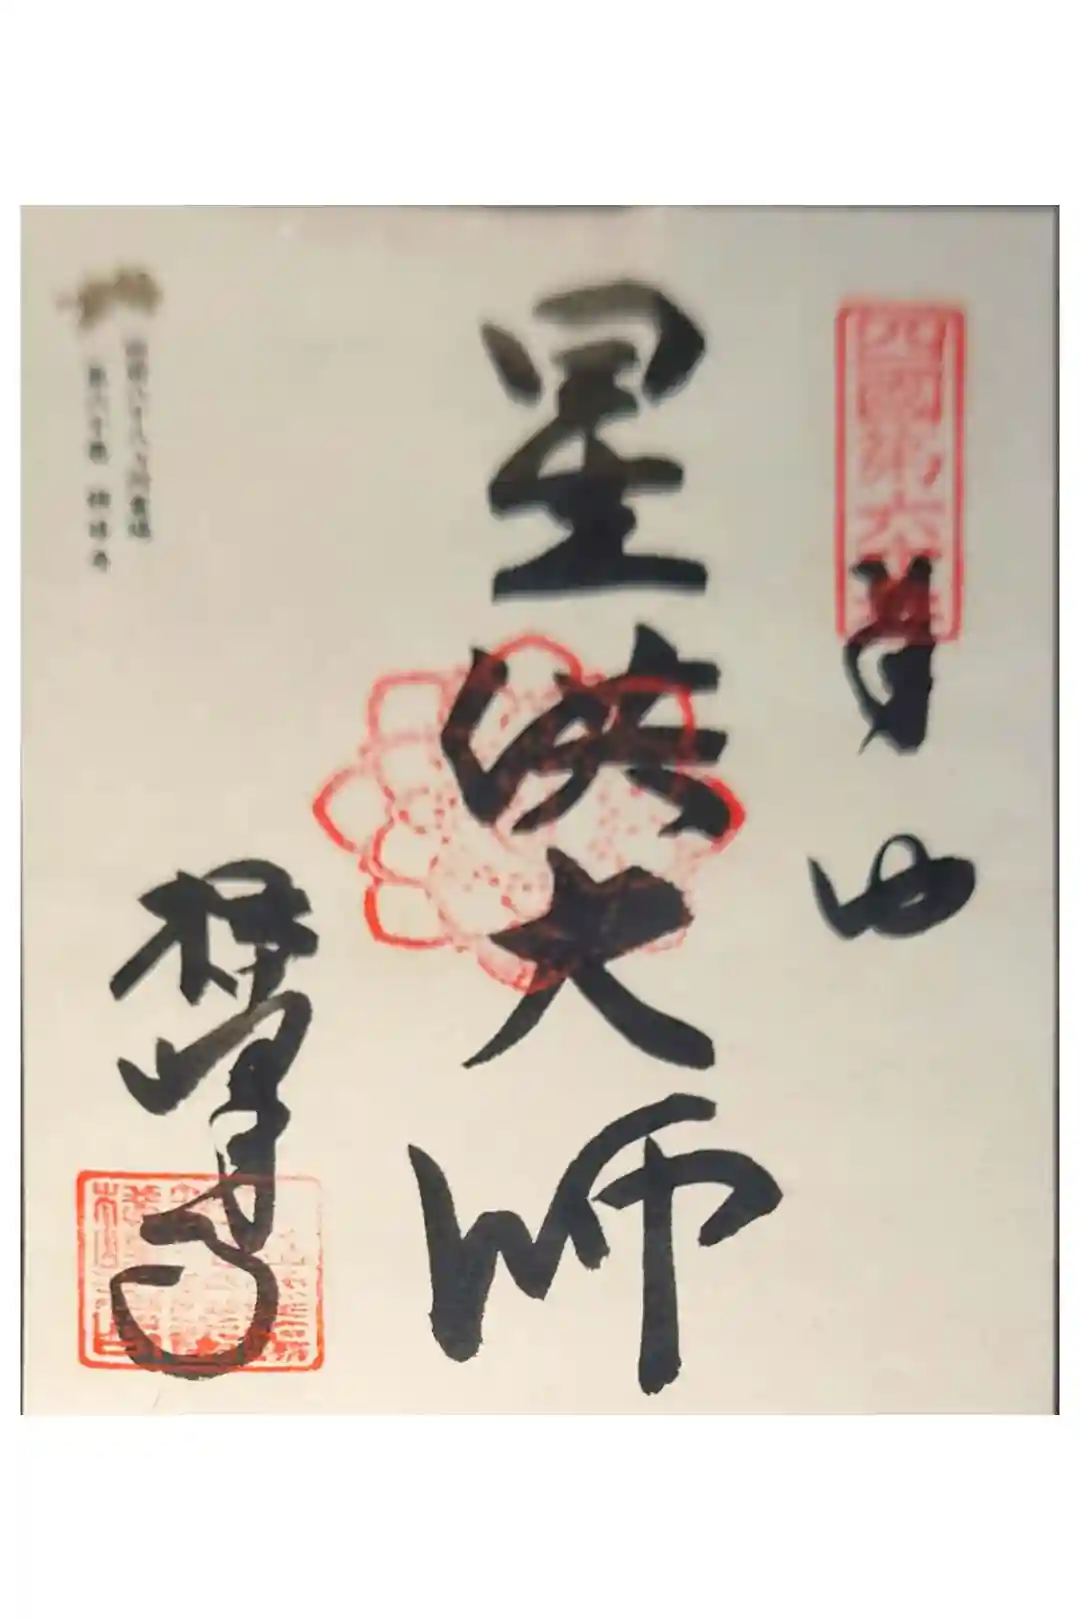 四國第六十番
奉拝
星供大師
横峰寺
四国八十八ヶ所霊場
第六十番 横峰寺